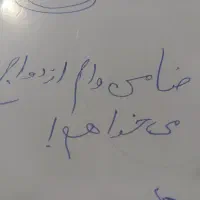 ضامن وام ازدواج
می‌خواهم!